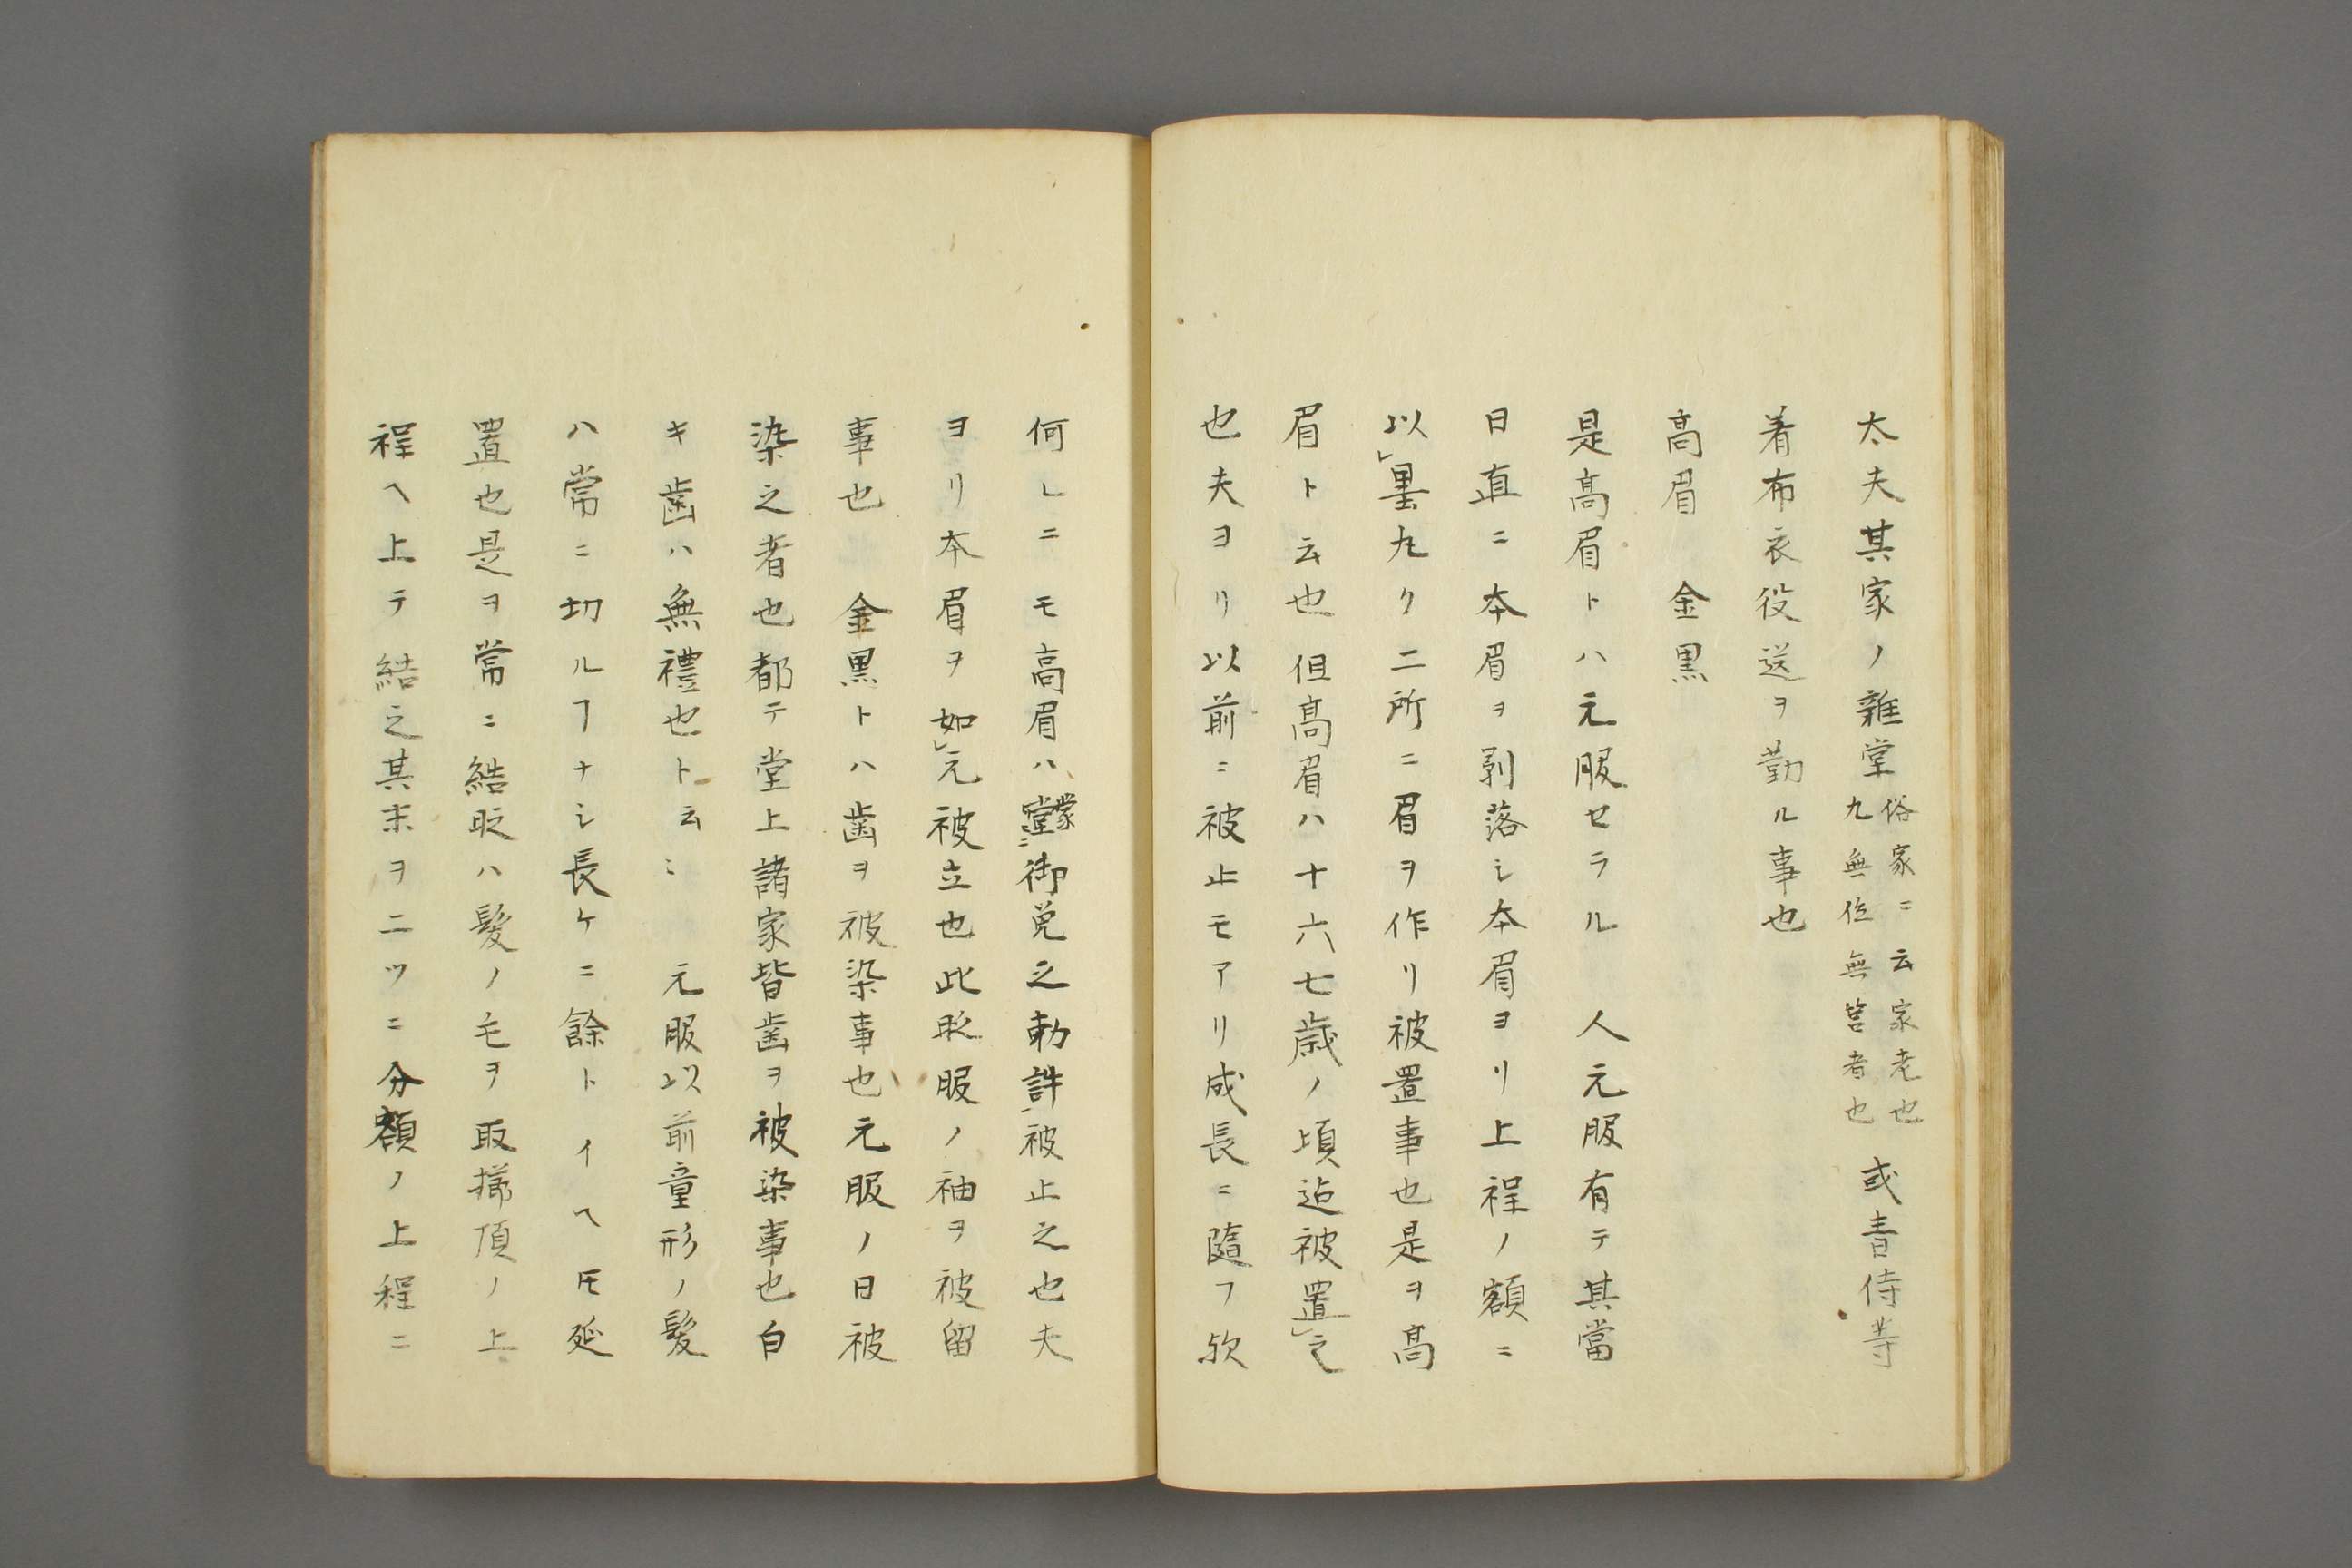 太夫其家ノ雑堂俗家ニ云家老也九無位無官者也或青侍等
着布衣役送ヲ勤ル事也
高眉　金黒
是高眉トハ元服セラル　人元服有テ其當
日直ニ本眉ヲ剥落シ本眉ヨリ上程ノ額ニ
以レ墨丸ク二所ニ眉ヲ作リ被置事也是ヲ高
眉ト云也但高眉ハ十六七歳ノ頃迠被置レ之
也夫ヨリ以前ニ被止モアリ成長ニ隨フ欤
何レニモ高眉ハ蒙御免之勅許被止之也夫
ヨリ本眉ヲ如レ元被立也此时服ノ袖ヲ被留
事也　金黒トハ歯ヲ被染事也元服ノ日被
染之者也都テ堂上諸家皆歯ヲ被染事也白
キ歯ハ無禮也ト云ミ　元服以前童形ノ髪
ハ常ニ切ルヿナシ長ケニ餘トイヘ𪜈延
置也是ヲ常ニ結时ハ髪ノ毛ヲ取揚頂ノ上
程ヘ上テ結之其末ヲ二ツニ分額ノ上程ニ